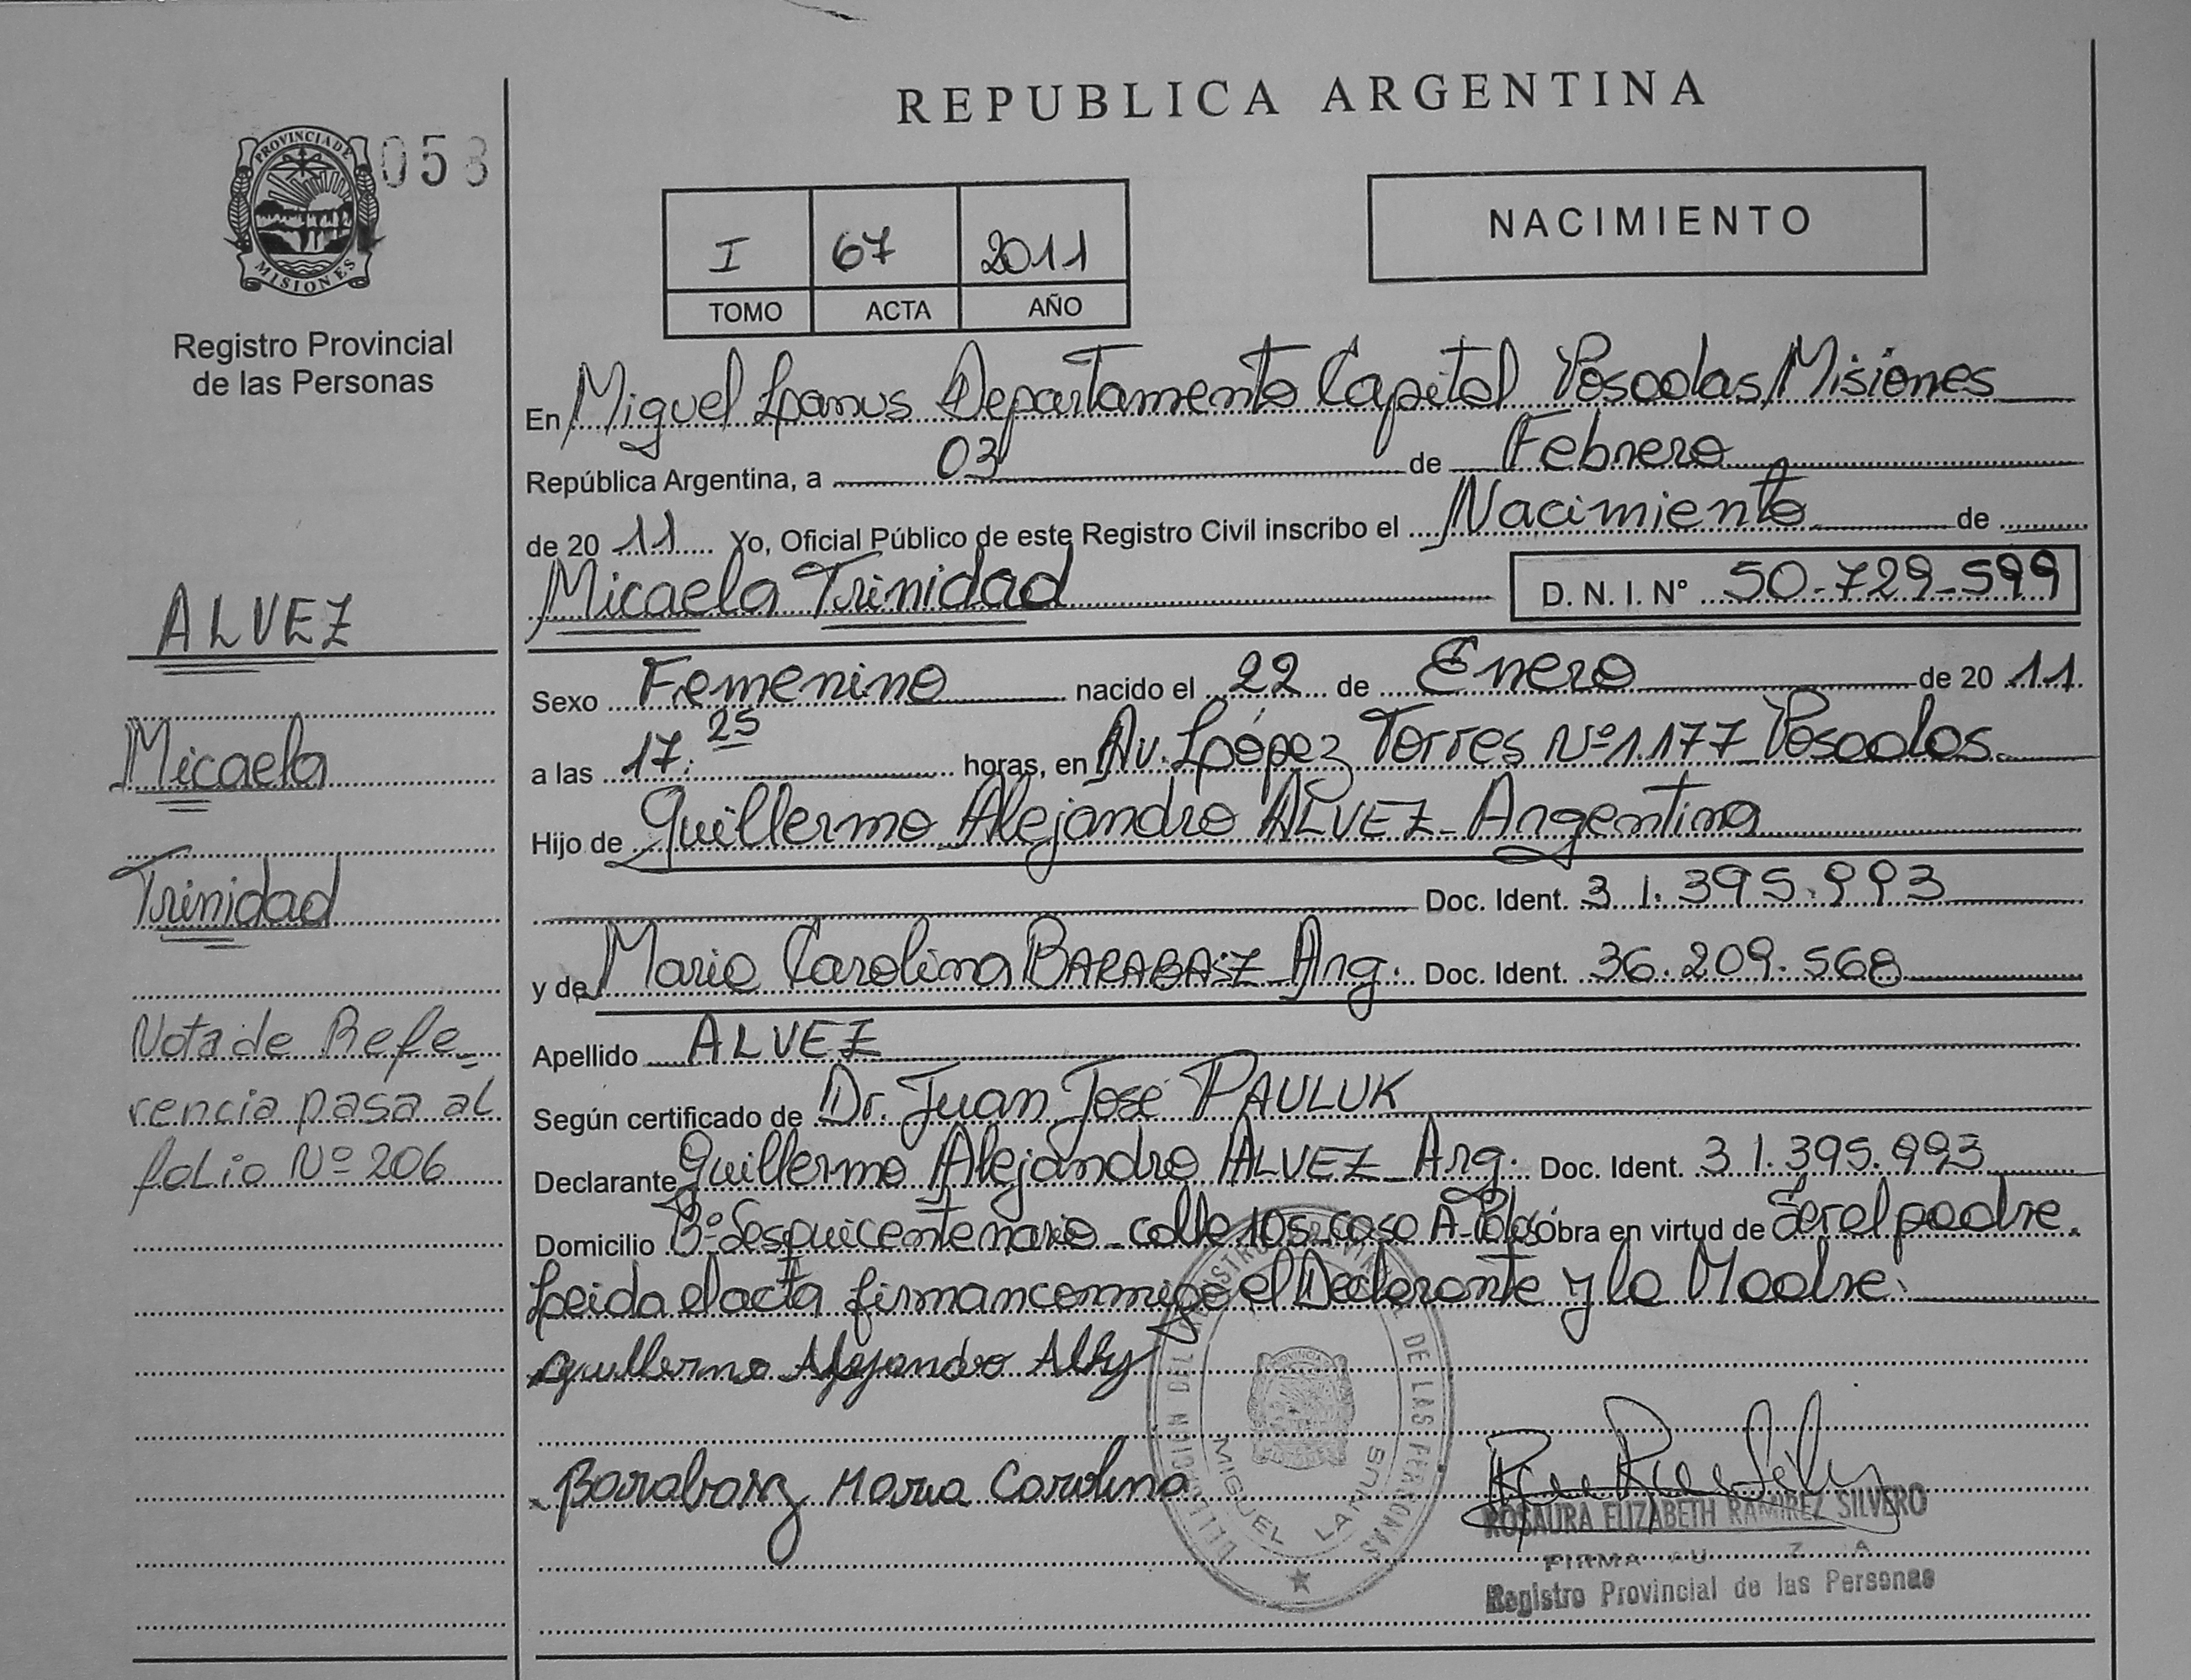 REPUBLICA ARGENTINA
PROVINCIA DE
MISIONES
053
Registro Provincial
de las Personas
I 67 2011
TOMO ACTA AÑO
NACIMIENTO
En Miguel Lanus Departamento Capital Posadas Misiones
República Argentina, a 03 de Febrero
de 20 11 Yo, Oficial Público de este Registro Civil inscribo el Nacimiento de
Micaela Trinidad D. N. I. Nº 50-729-599
Sexo Femenino nacido el 22 de Enero de 20 11
a las 17:25 horas, en Av. López Torres Nº 1.177 Posadas
Hijo de Guillermo Alejandro ALVEZ - Argentina
Doc. Ident. 31.395.993
y de Maria Carolina BARABASZ - Arg. Doc. Ident. 36.209.568
Apellido ALVEZ
Según certificado de Dr. Juan José PAULUK
Declarante Guillermo Alejandro ALVEZ - Arg. Doc. Ident. 31.395.993
Domicilio Bº Sesquicentenario - calle 105 - casa A- obra en virtud de Ser el padre.
Leida el acta firman conmigo el Declarante y la Madre.
Guillermo Alejandro
Barabasz Maria Carolina
ROSAURA ELIZABETH RAMIREZ SILVERO
FIRMA
Registro Provincial de las Personas
DELEGACION DEL REGISTRO PROVINCIAL DE LAS PERSONAS
MIGUEL LANUS
ALVEZ
Micaela
Trinidad
Nota de Refe-
rencia pasa al
folio Nº 206